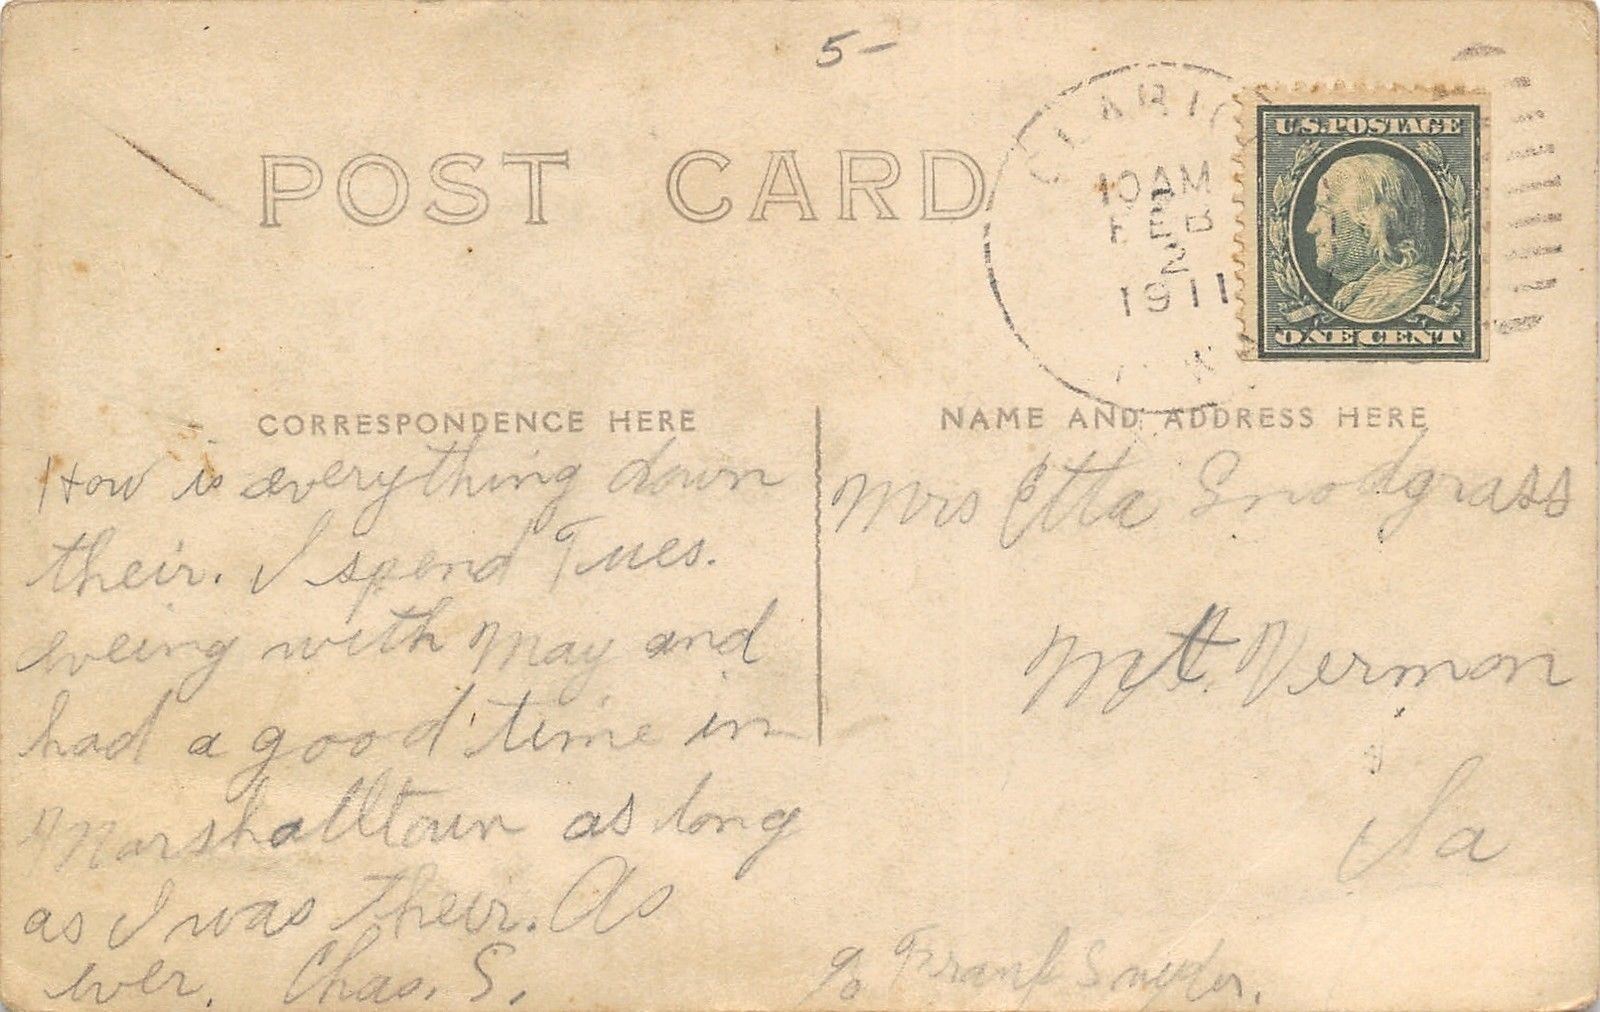 5-
POST CARD
CLARIO
10 AM
FEB
2
1911
U.S. POSTAGE
ONE CENT
CORRESPONDENCE HERE
NAME AND ADDRESS HERE
How is everything down
their. I spend Tues.
eveing with May and
had a good time in
Marshalltown as long
as I was their. As
ever. Chas. S.
Mrs Etta Snodgrass
Mt. Vernon
Ia
c/o Frank Snyder.